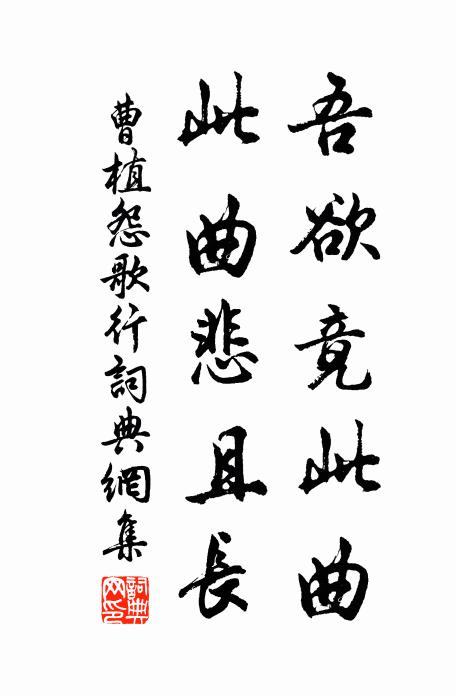 吾欲竟此曲
此曲悲且長
曹植怨歌行詞典網集
詞典網印